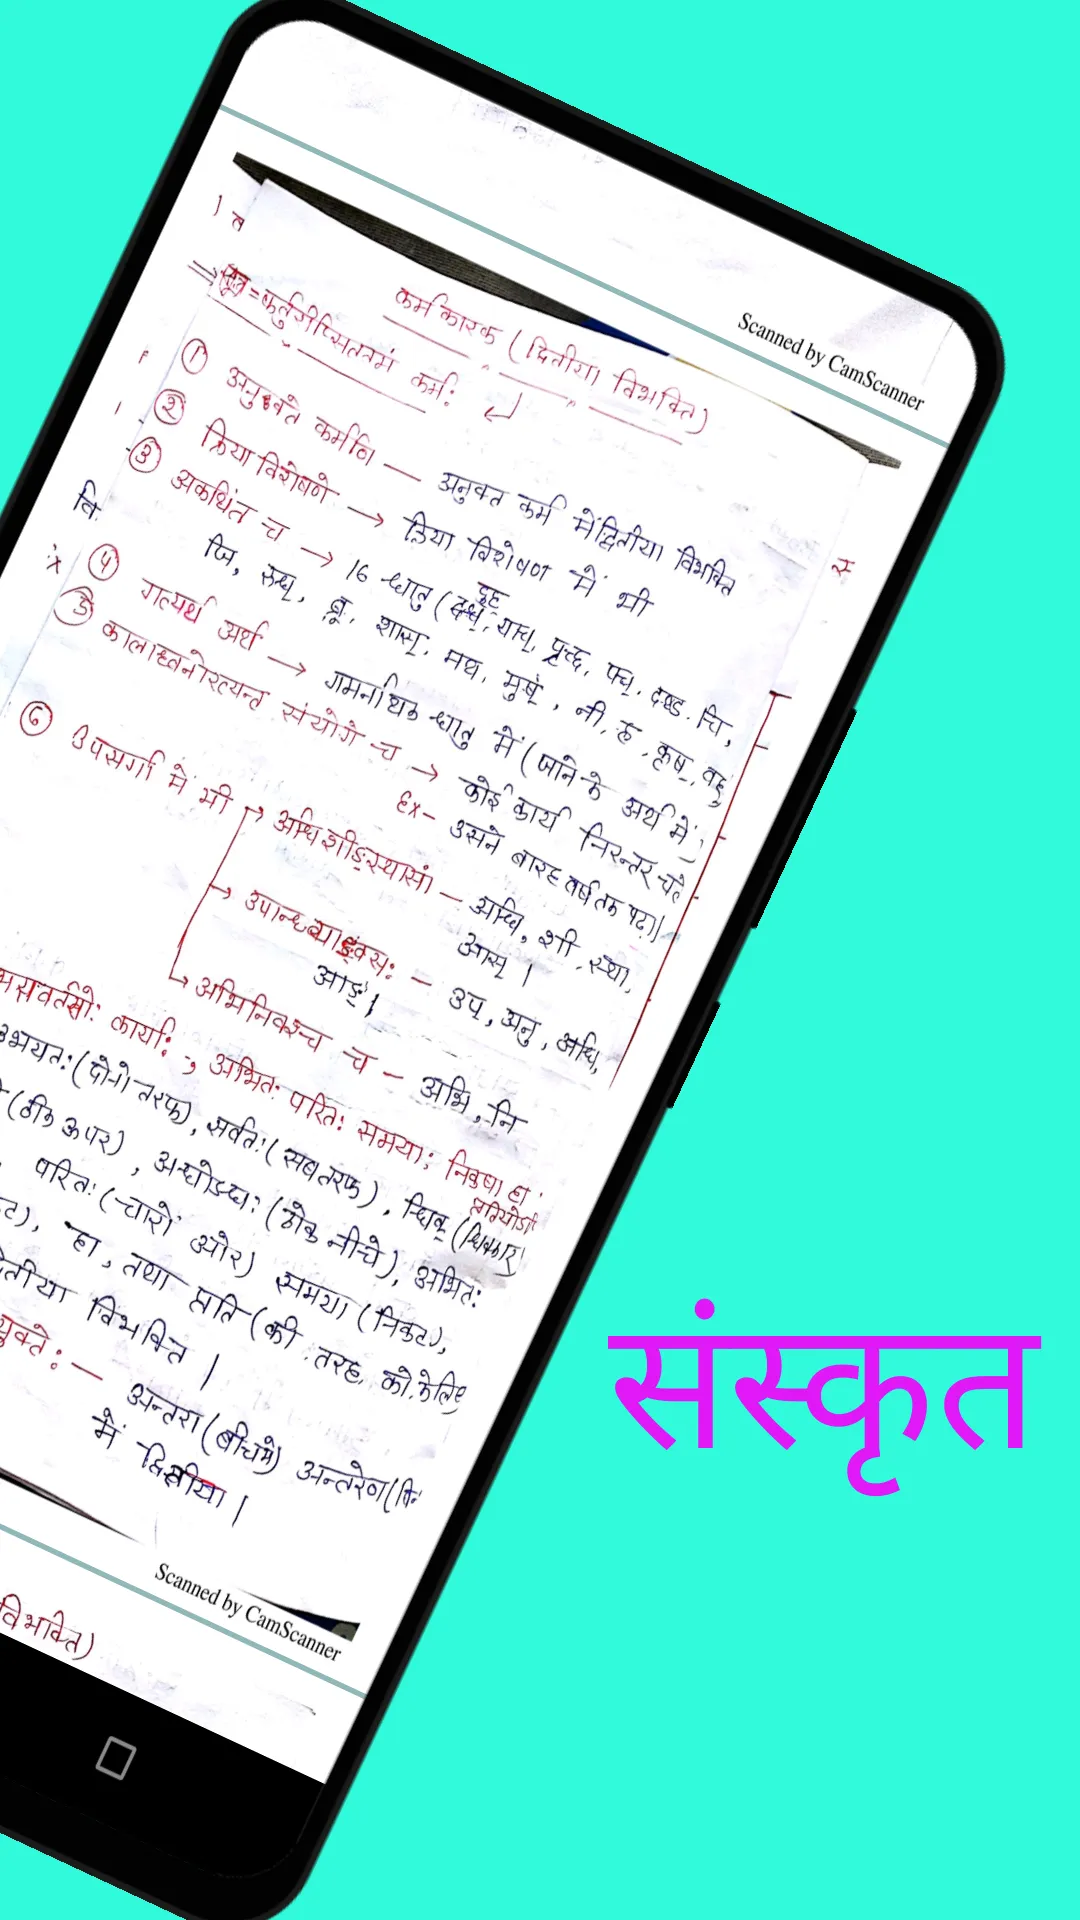 Scanned by CamScanner
कर्म कारक (द्वितीया विभक्ति)
सूत्र = कर्तुरीप्सिततमं कर्म:
① अनुक्ते कर्मणि — अनुक्त कर्म में द्वितीया विभक्ति
② क्रिया विशेषणे → क्रिया विशेषण में भी
③ अकथितं च → 16 धातु ( दुह्, याच्, पृच्छ, पच्, दण्ड. चि,
जि, रूध्, ब्रू, शास्, मथ, मुष्, नी, ह, कृष्, वह्
④ गत्यर्थ अर्थ → गमनार्थक धातु में (जाने के अर्थ में)
कालाध्वनोरत्यन्त संयोगे च → कोई कार्य निरन्तर चले
Ex- उसने बारह वर्ष तक पढ़ा।
⑥ उपसर्गो में भी → अधिशीङ्स्थासां — अधि, शी, स्था,
आस् |
→ उपान्वध्याङ्वस: — उप, अनु, अधि,
आङ् |
→ च — अभि, नि
कार्या: ; अभित: परित: समया; निकषा हा
उभयत: (दोनो तरफ), सर्वत: (सब तरफ), धिक् (धिक्कार)
(ठीक ऊपर), अधोऽध: (ठीक नीचे), अभित:
परित: (चारों ओर) समया (निकट),
हा, तथा प्रति (की तरह, को, के लिए
द्वितीया विभक्ति |
युक्ते: — अन्तरा (बीच में) अन्तरेण (
में द्वितीया |
Scanned by CamScanner
विभक्ति)
संस्कृत